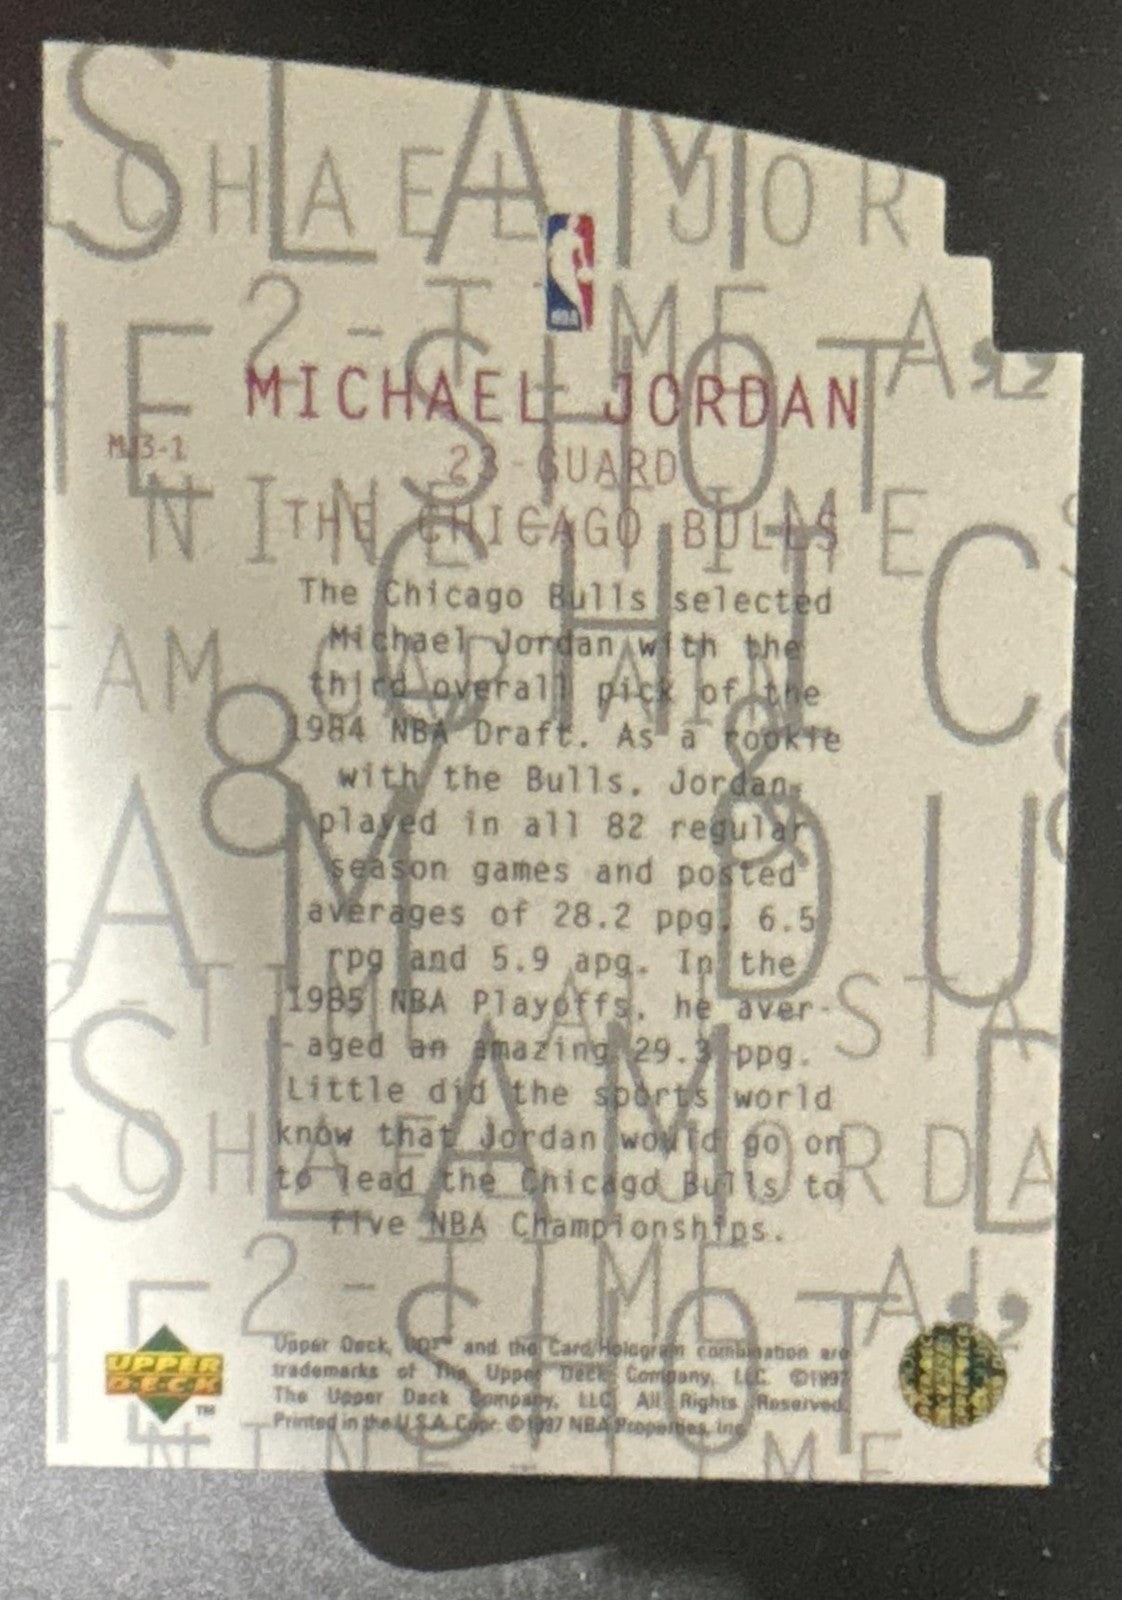 SLAM
CHAEL JOR
2-TIME A
HE SHOT''
MICHAEL JORDAN
MJ3-1
23-GUARD
NINE TIME
THE CHICAGO BULLS
CHIC
The Chicago Bulls selected
Michael Jordan with the
EAM CAPTAIN
third overall pick of the
8 &
1984 NBA Draft. As a rookie
with the Bulls, Jordan
AM DU
played in all 82 regular
season games and posted
averages of 28.2 ppg, 6.5
rpg and 5.9 apg. In the
2-TIME ALL-STA
1985 NBA Playoffs, he aver-
aged an amazing 29.3 ppg.
SLAM D
Little did the sports world
know that Jordan would go on
CHAEL JORDA
to lead the Chicago Bulls to
five NBA Championships.
2-TIME AL
HE SHOT''
UPPER
DECK
TM
Upper Deck, UD3™ and the Card/Hologram combination are
trademarks of The Upper Deck Company, LLC. ©1997
The Upper Deck Company, LLC. All Rights Reserved.
Printed in the U.S.A. Copr. ©1997 NBA Properties, Inc.
NINE TIME